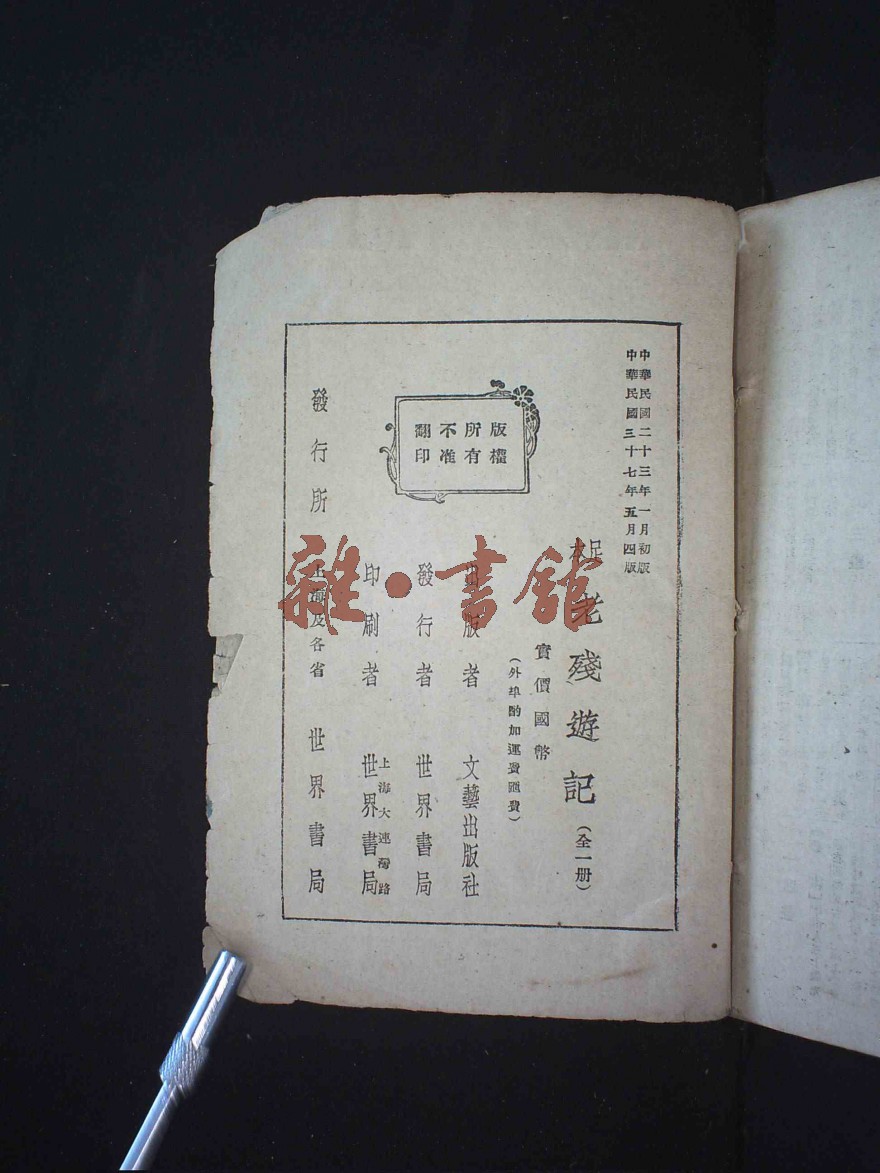 中華民國二十三年一月初版
中華民國三十七年五月四版
足本 老殘遊記（全一册）
實價國幣
（外埠酌加運費匯費）
版權所有不准翻印
出版者 文藝出版社
發行者 世界書局
印刷者 上海大連灣路 世界書局
發行所 上海及各省 世界書局
雜·書館